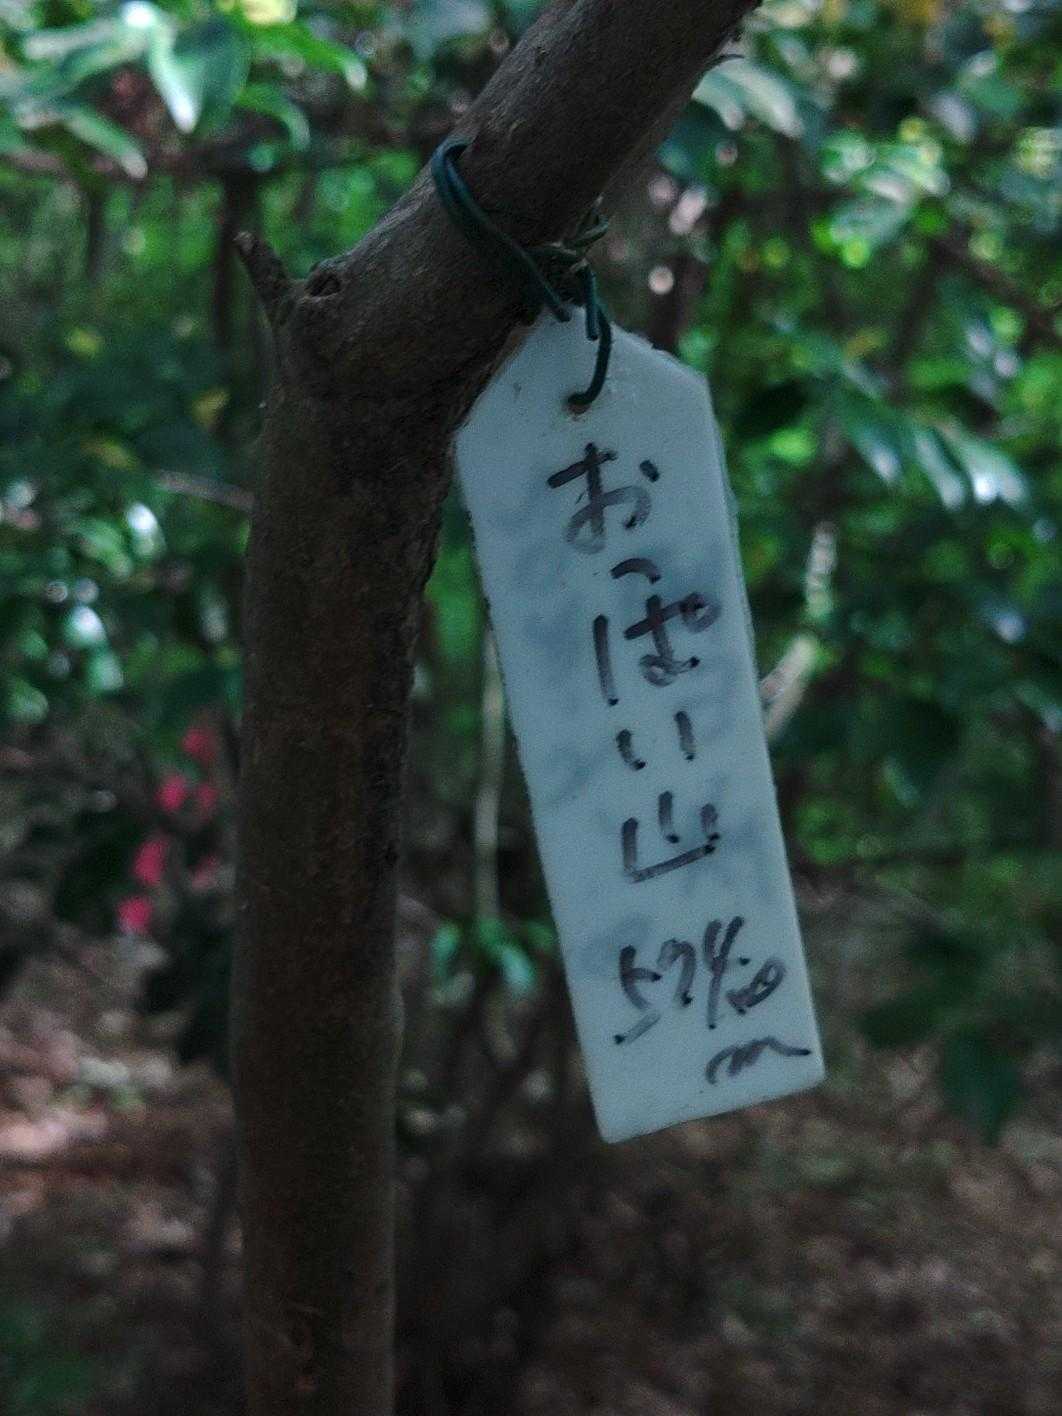 おっぱい山
574.8
m